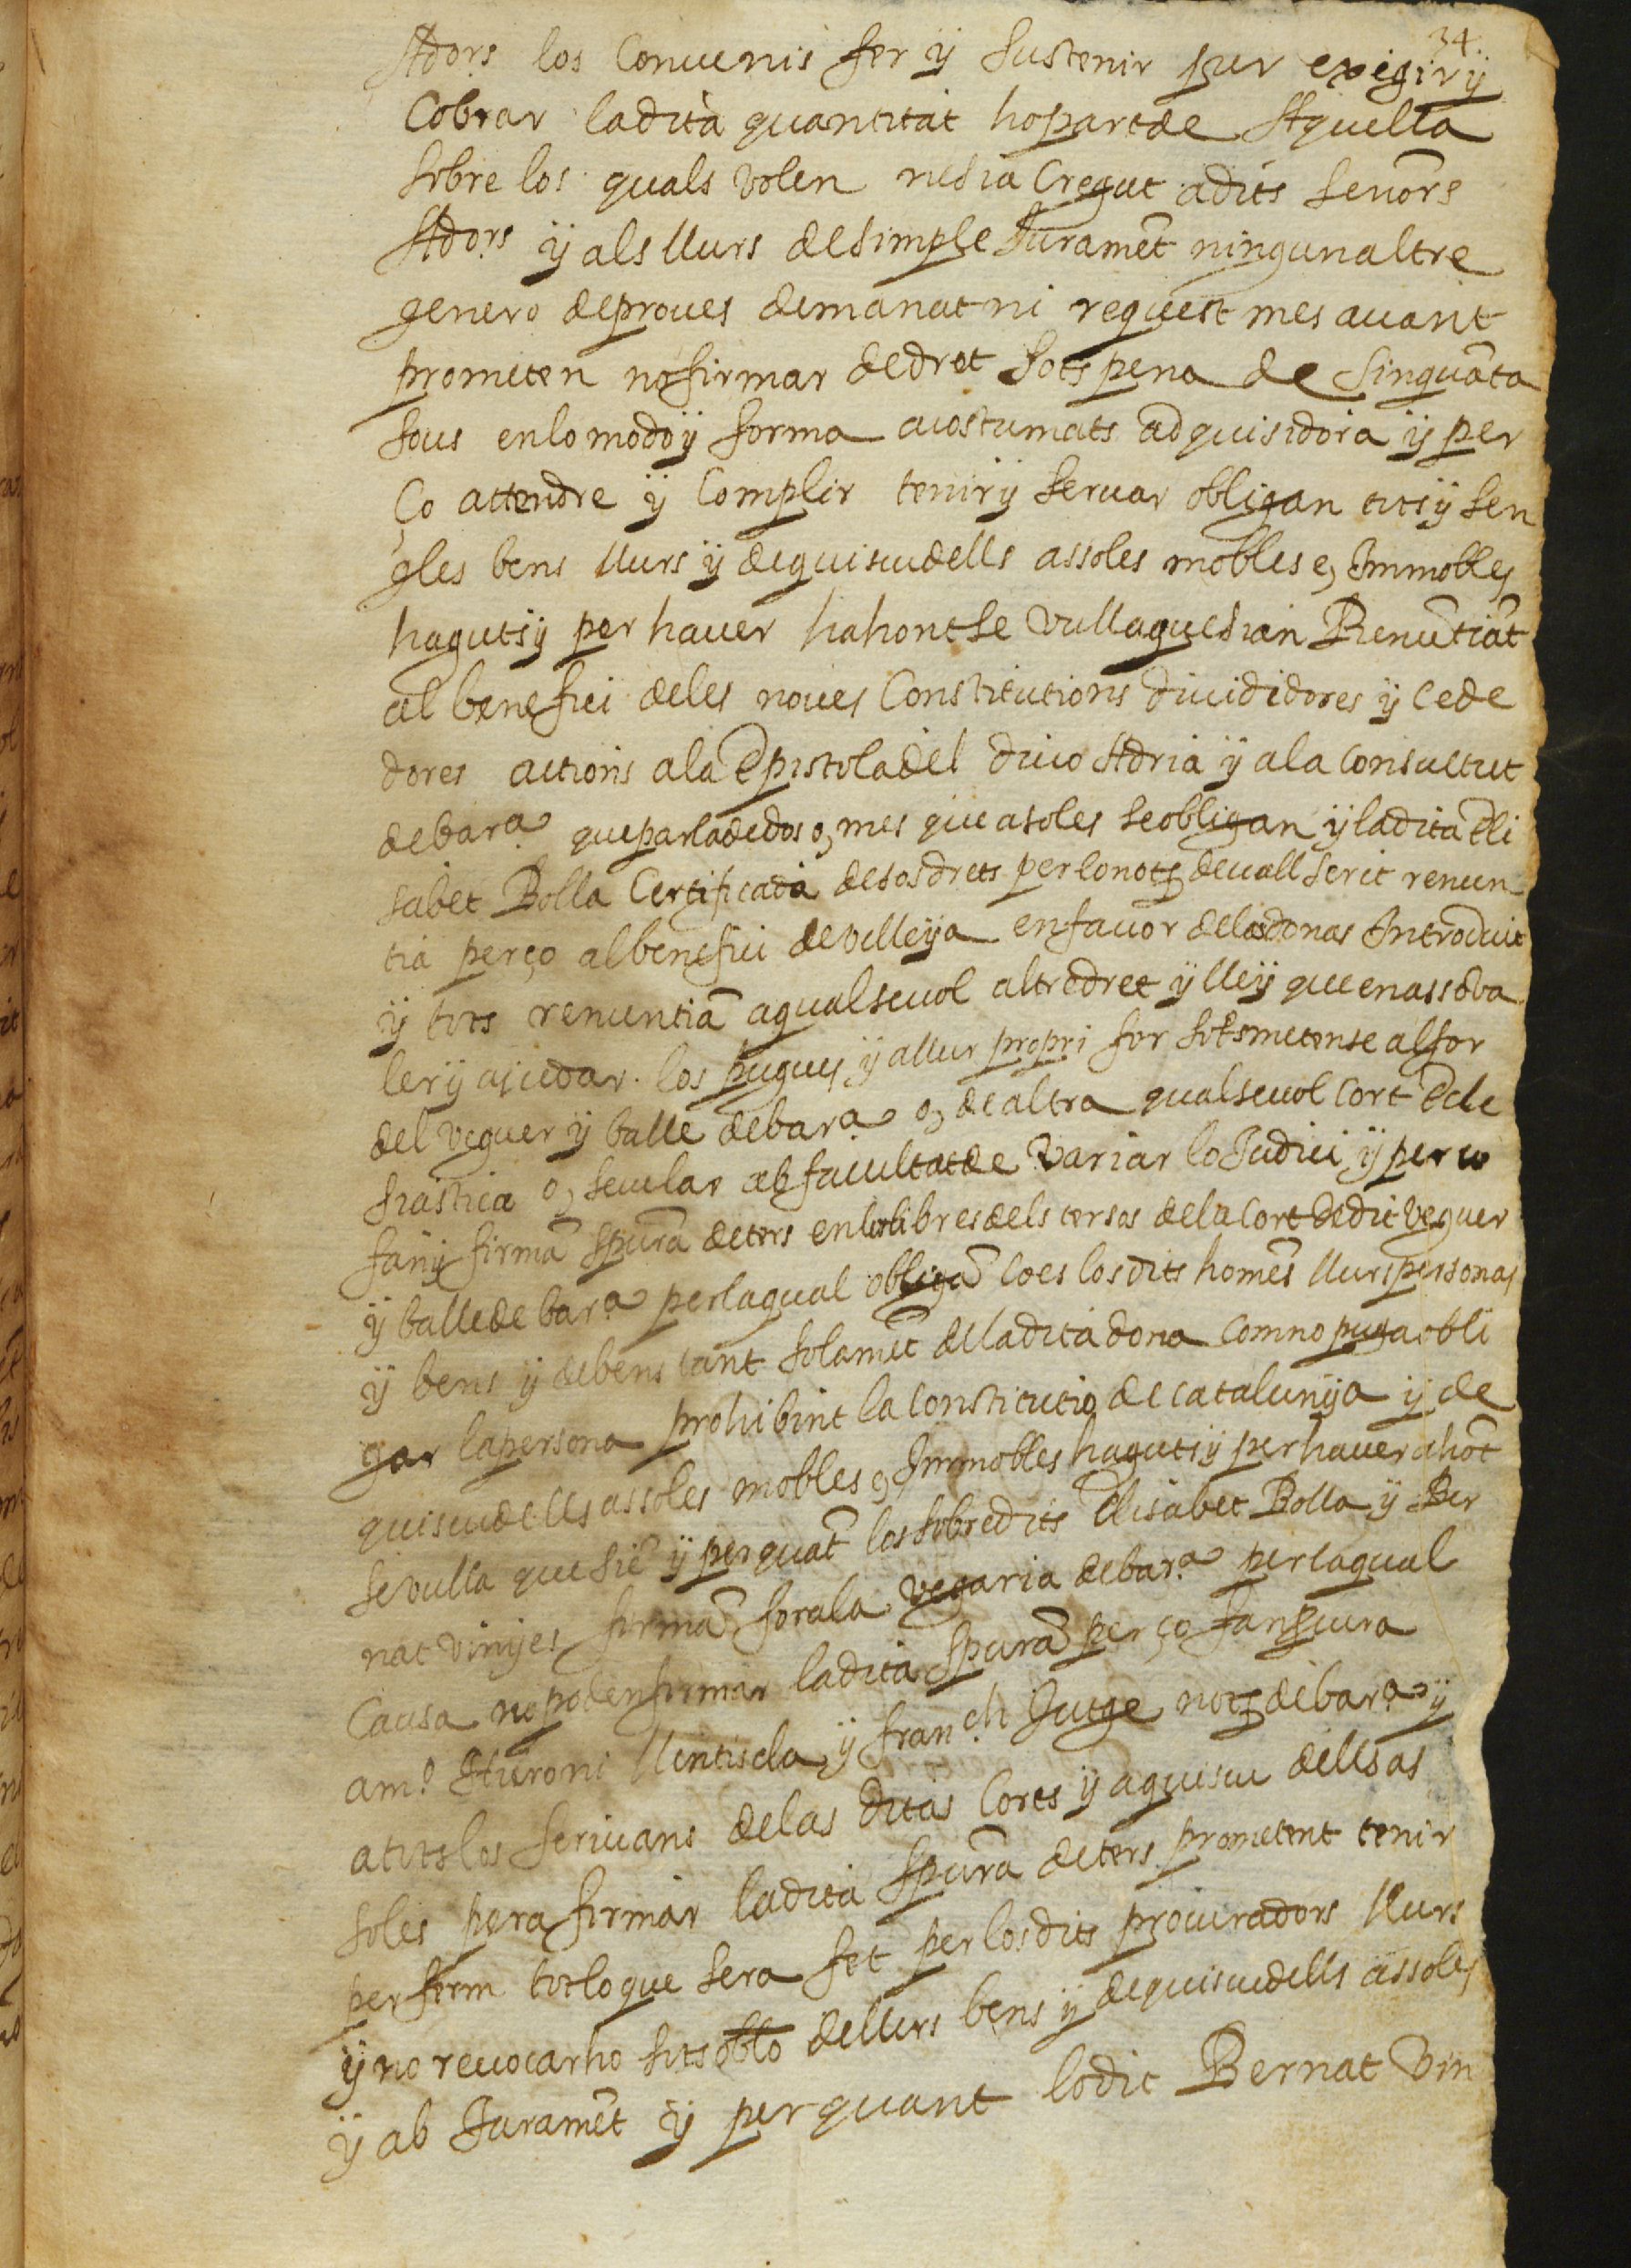 34.
Adors los Convenis fer ÿ sustenir per exigir ÿ
Cobrar ladita quantitat hopartde Aquella
sobre los quals volen nesia Cregut adits senors
Adors ÿ als llurs desimple Juramẽt ningunaltre
genero deproves demanat ni request mes avant
prometen nofirmar dedret sots pena de sinquãta
sous enlo modoÿ forma acostumats adquisidora ÿ per
Ço attendre ÿ Complir tenirÿ servar obligan totsÿ sen
gles bens llurs ÿ dequiscudells assoles mobles e, Immobles
hagutsÿ per haver hahontse vullaquesian Renũtiãt
al benefici deles noves Constitutions divididores ÿ Cede
dores actions ala Epistoladel divo Adria ÿ ala Consuetut
debar.ª queparladedos o, mes que asoles seobligan ÿladita Eli
sabet Bolla Certificada desosdrets per lonotʒ devall scrit renun
tia perço albenefici develleÿa enfavor delasdonas Introduit
ÿ tots renuntiã aqualsevol altredret ÿ lleÿ que enassova
lerÿ ajudar los pugues ÿ allur propri for sotsmetense alfor
del veguer ÿ balle debar.ª o, dealtra qualsevol Cort Ecle
siastica o, secular ab facultatde variar lo Judici ÿ perco
fanÿ firmã spura deters enloslibresdels tersos dela Cort dedit veguer
ÿ ballede bar.ª perlaqual obligã Coes losdits homẽs llurs personas
ÿ bens ÿ debens tant solamẽt delladita dona Comno puga obli
gar lapersona prohibint la Constitutio de Catalunÿa ÿ de
quiscudells assoles mobles e, Immobles hagutsÿ perhaver ahõt
sevulla que siẽ ÿ per quãt los sobredits Elisabet Bolla ÿ Ber
nat vinÿes firmã forala vegaria debar.ª perlaqual
Causa nopodenfirmar ladita spurã perço fanpcura
am.º Hieroni llentiscla ÿ fran.ch Jutge notʒ debar.ª ÿ
atotslos scrivans delas ditas Corts ÿ aquiscu dells as
soles pera firmar ladita spurã deters prometent tenir
per ferm totloque sera fet per losdits procuradors llurs
ÿ no revocarho sots obló dellurs bens ÿ dequiscudells assoles
ÿ ab Juramẽt ÿ per quant lodit Bernat Vin